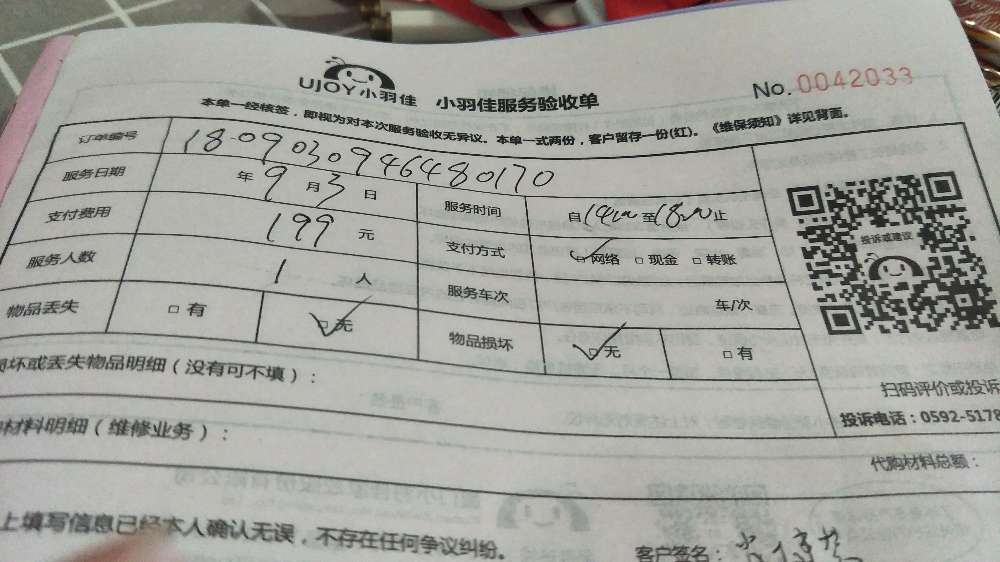 UJOY小羽佳 小羽佳服务验收单 No.0042033
本单一经核签，即视为对本次服务验收无异议。本单一式两份，客户留存一份(红)。《维保须知》详见背面。
订单编号 1809030946480170
服务日期 年9月3日 服务时间 自1400至1800止
支付费用 199元 支付方式 网络 □现金 □转账
服务人数 1人 服务车次 车/次
物品丢失 □有 □无 物品损坏 □无 □有
投诉或建议
扫码评价或投诉
投诉电话：0592-5178
坏或丢失物品明细（没有可不填）：
材料明细（维修业务）：
代购材料总额：
上填写信息已经本人确认无误，不存在任何争议纠纷。
客户签名：